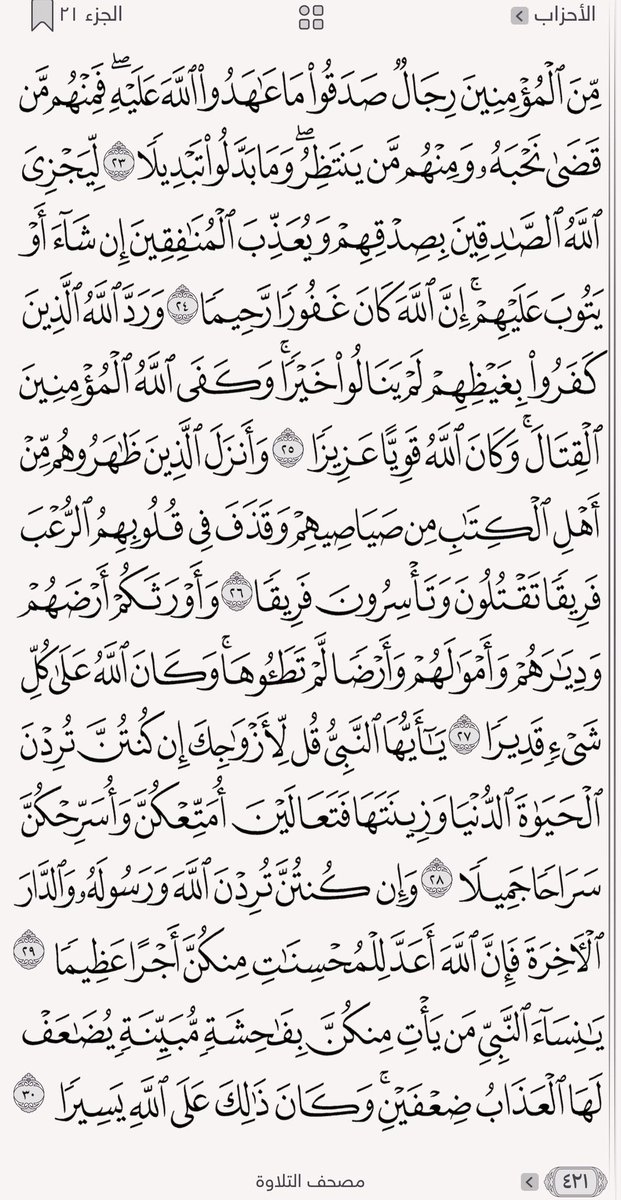 الأحزاب
الجزء ٢١
مِّنَ ٱلْمُؤْمِنِينَ رِجَالٌ صَدَقُوا۟ مَا عَـٰهَدُوا۟ ٱللَّهَ عَلَيْهِ ۖ فَمِنْهُم مَّن
قَضَىٰ نَحْبَهُۥ وَمِنْهُم مَّن يَنتَظِرُ ۖ وَمَا بَدَّلُوا۟ تَبْدِيلًا ٢٣ لِّيَجْزِىَ
ٱللَّهُ ٱلصَّـٰدِقِينَ بِصِدْقِهِمْ وَيُعَذِّبَ ٱلْمُنَـٰفِقِينَ إِن شَآءَ أَوْ
يَتُوبَ عَلَيْهِمْ ۚ إِنَّ ٱللَّهَ كَانَ غَفُورًا رَّحِيمًا ٢٤ وَرَدَّ ٱللَّهُ ٱلَّذِينَ
كَفَرُوا۟ بِغَيْظِهِمْ لَمْ يَنَالُوا۟ خَيْرًا ۚ وَكَفَى ٱللَّهُ ٱلْمُؤْمِنِينَ
ٱلْقِتَالَ ۚ وَكَانَ ٱللَّهُ قَوِيًّا عَزِيزًا ٢٥ وَأَنزَلَ ٱلَّذِينَ ظَـٰهَرُوهُم مِّنْ
أَهْلِ ٱلْكِتَـٰبِ مِن صَيَاصِيهِمْ وَقَذَفَ فِى قُلُوبِهِمُ ٱلرُّعْبَ
فَرِيقًا تَقْتُلُونَ وَتَأْسِرُونَ فَرِيقًا ٢٦ وَأَوْرَثَكُمْ أَرْضَهُمْ
وَدِيَـٰرَهُمْ وَأَمْوَٰلَهُمْ وَأَرْضًا لَّمْ تَطَـُٔوهَا ۚ وَكَانَ ٱللَّهُ عَلَىٰ كُلِّ
شَىْءٍ قَدِيرًا ٢٧ يَـٰٓأَيُّهَا ٱلنَّبِىُّ قُل لِّأَزْوَٰجِكَ إِن كُنتُنَّ تُرِدْنَ
ٱلْحَيَوٰةَ ٱلدُّنْيَا وَزِينَتَهَا فَتَعَالَيْنَ أُمَتِّعْكُنَّ وَأُسَرِّحْكُنَّ
سَرَاحًا جَمِيلًا ٢٨ وَإِن كُنتُنَّ تُرِدْنَ ٱللَّهَ وَرَسُولَهُۥ وَٱلدَّارَ
ٱلْـَٔاخِرَةَ فَإِنَّ ٱللَّهَ أَعَدَّ لِلْمُحْسِنَـٰتِ مِنكُنَّ أَجْرًا عَظِيمًا ٢٩
يَـٰنِسَآءَ ٱلنَّبِىِّ مَن يَأْتِ مِنكُنَّ بِفَـٰحِشَةٍ مُّبَيِّنَةٍ يُضَـٰعَفْ
لَهَا ٱلْعَذَابُ ضِعْفَيْنِ ۚ وَكَانَ ذَٰلِكَ عَلَى ٱللَّهِ يَسِيرًا ٣٠
٤٢١
مصحف التلاوة